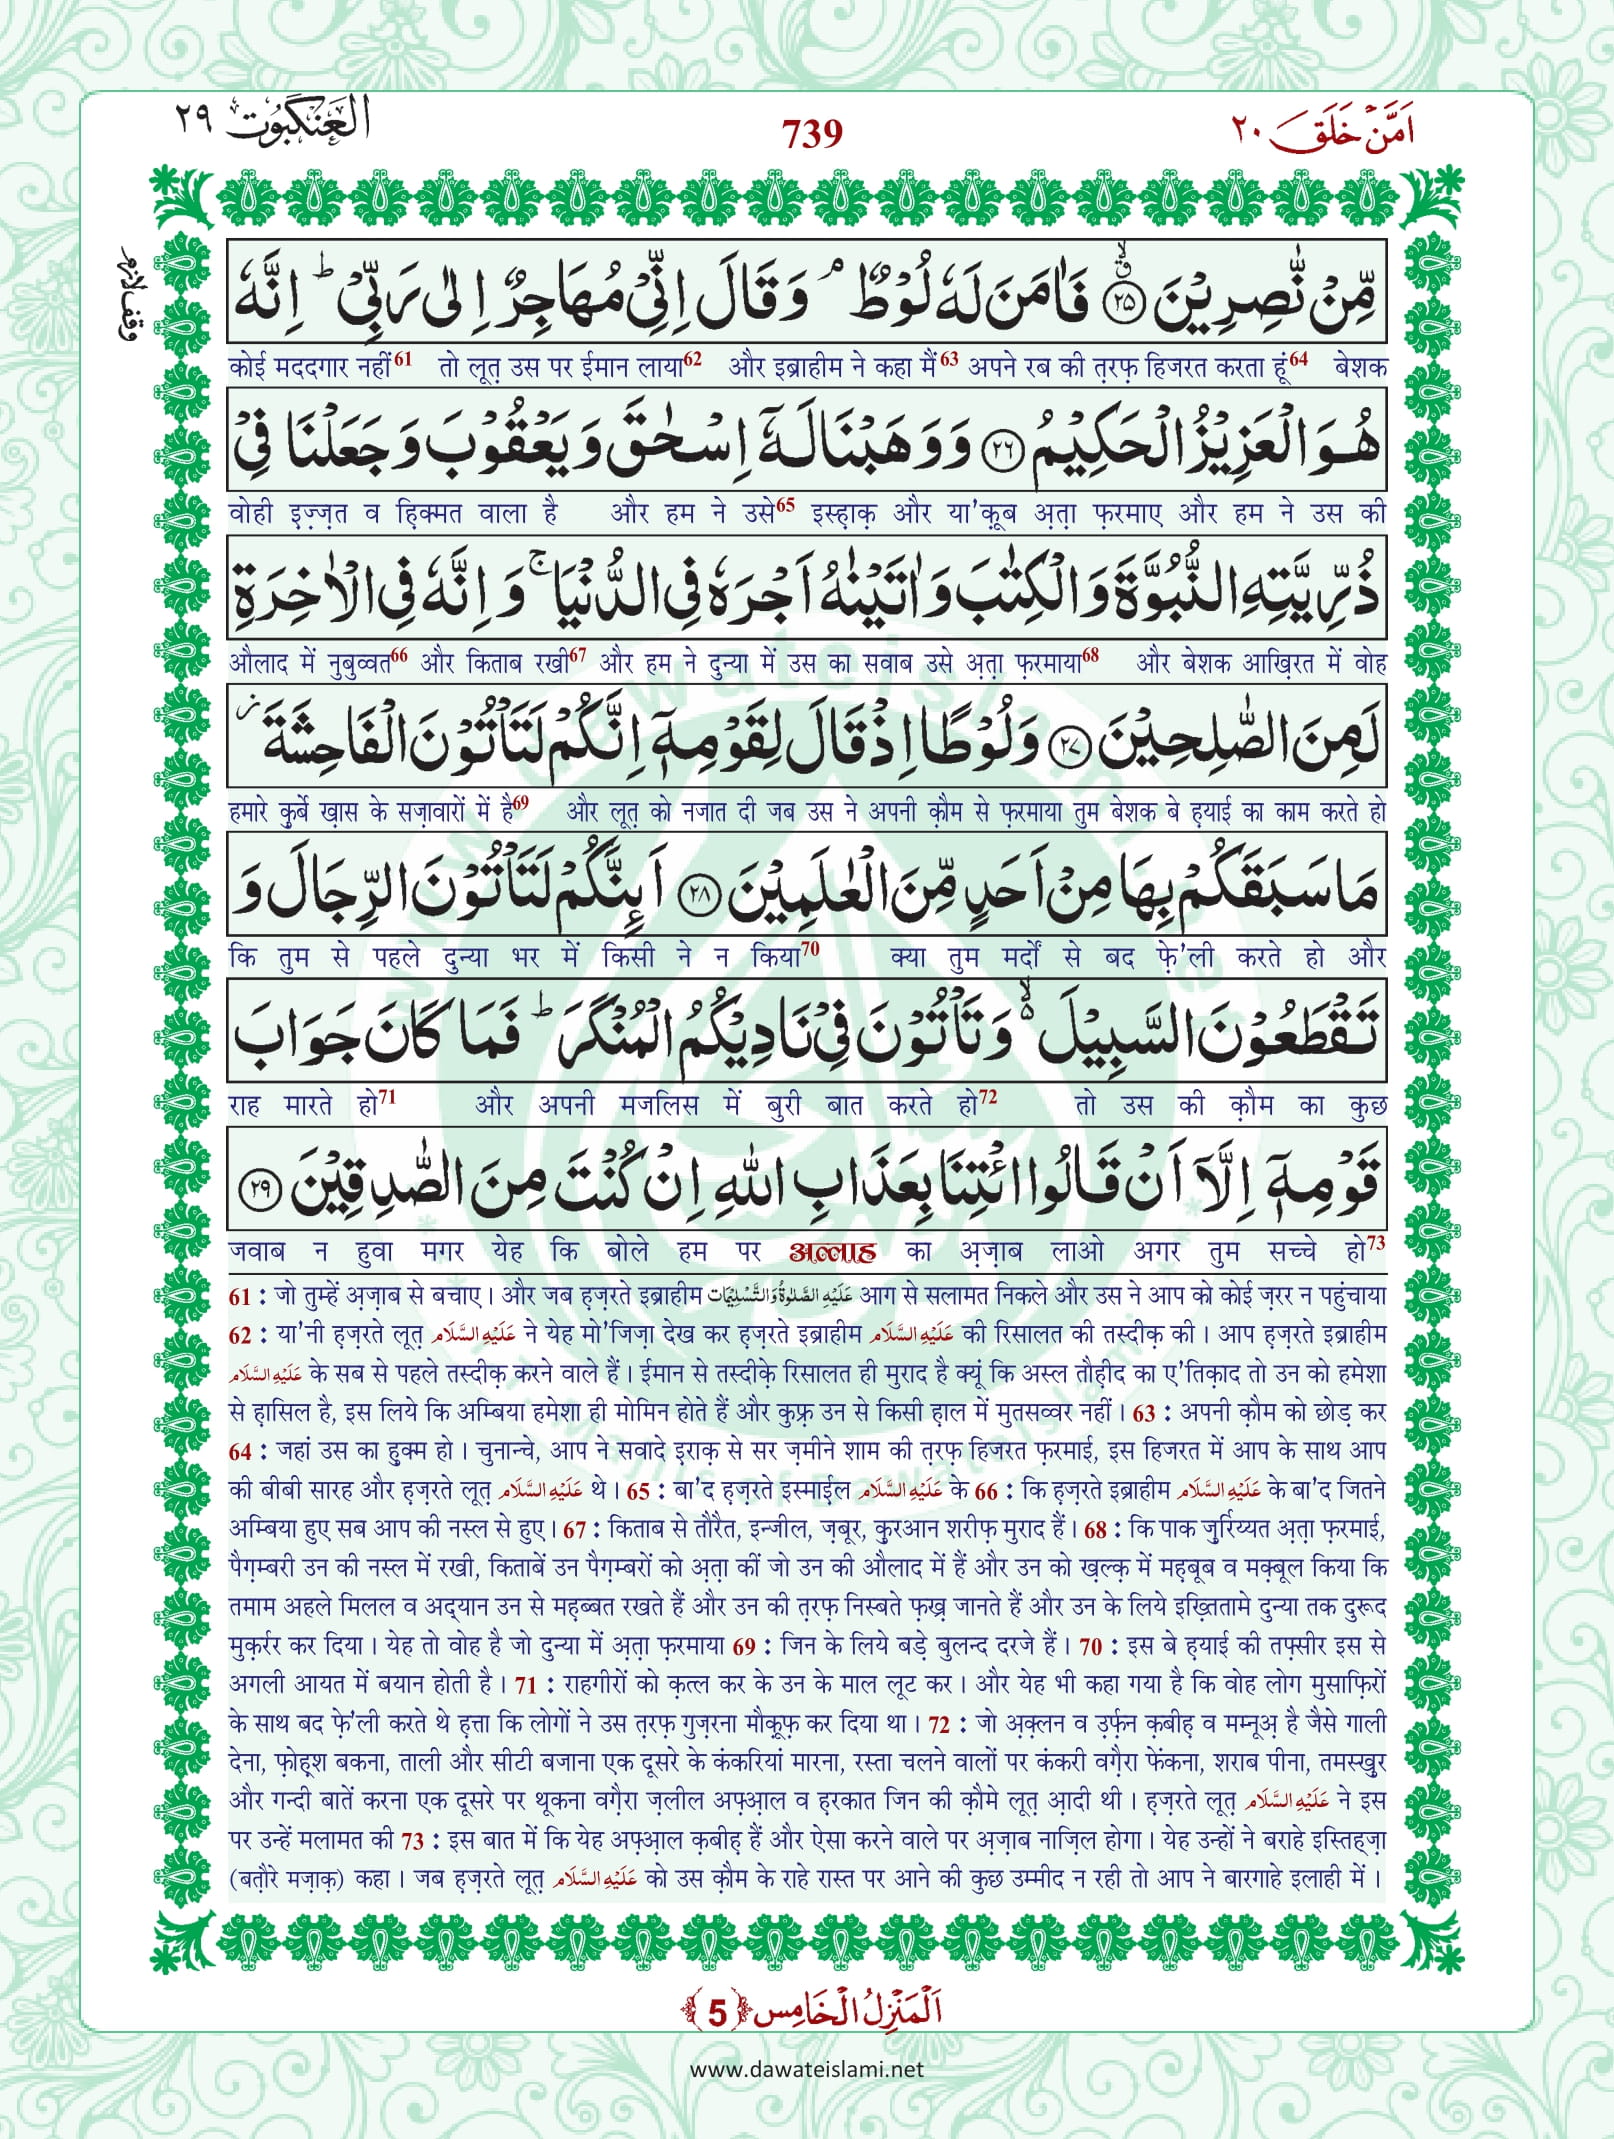 اَمَّنْ خَلَقَ ٢٠ 739 الْعَنْكَبُوْت ٢٩
وقف لازم
مِّنْ نّٰصِرِيْنَ ﴿٢٥﴾ۙ ق فَاٰمَنَ لَهٗ لُوْطٌ ۘ وَ قَالَ اِنِّيْ مُهَاجِرٌ اِلٰى رَبِّيْ ؕ اِنَّهٗ
कोई मददगार नहीं61 तो लूत़ उस पर ईमान लाया62 और इब्राहीम ने कहा मैं63 अपने रब की त़रफ़ हिजरत करता हूं64 बेशक
هُوَ الْعَزِيْزُ الْحَكِيْمُ ﴿٢٦﴾ وَ وَهَبْنَا لَهٗۤ اِسْحٰقَ وَ يَعْقُوْبَ وَ جَعَلْنَا فِيْ
वोही इ़ज़्ज़त व हि़क्मत वाला है और हम ने उसे65 इस्ह़ाक़ और या'क़ूब अ़त़ा फ़रमाए और हम ने उस की
ذُرِّيَّتِهِ النُّبُوَّةَ وَ الْكِتٰبَ وَ اٰتَيْنٰهُ اَجْرَهٗ فِي الدُّنْيَا ۚ وَ اِنَّهٗ فِي الْاٰخِرَةِ
औलाद में नुबुव्वत66 और किताब रखी67 और हम ने दुन्या में उस का सवाब उसे अ़त़ा फ़रमाया68 और बेशक आख़िरत में वोह
لَمِنَ الصّٰلِحِيْنَ ﴿٢٧﴾ وَ لُوْطًا اِذْ قَالَ لِقَوْمِهٖۤ اِنَّكُمْ لَتَاْتُوْنَ الْفَاحِشَةَ ؗ
हमारे कुर्बे ख़ास के सज़ावारों में है69 और लूत़ को नजात दी जब उस ने अपनी क़ौम से फ़रमाया तुम बेशक बे ह़याई का काम करते हो
مَا سَبَقَكُمْ بِهَا مِنْ اَحَدٍ مِّنَ الْعٰلَمِيْنَ ﴿٢٨﴾ اَىِٕنَّكُمْ لَتَاْتُوْنَ الرِّجَالَ وَ
कि तुम से पहले दुन्या भर में किसी ने न किया70 क्या तुम मर्दों से बद फ़े'ली करते हो और
تَقْطَعُوْنَ السَّبِيْلَ ۙ۬ وَ تَاْتُوْنَ فِيْ نَادِيْكُمُ الْمُنْكَرَ ؕ فَمَا كَانَ جَوَابَ
राह मारते हो71 और अपनी मजलिस में बुरी बात करते हो72 तो उस की क़ौम का कुछ
قَوْمِهٖۤ اِلَّاۤ اَنْ قَالُوا ائْتِنَا بِعَذَابِ اللّٰهِ اِنْ كُنْتَ مِنَ الصّٰدِقِيْنَ ﴿٢٩﴾
जवाब न हुवा मगर येह कि बोले हम पर अल्लाह का अ़ज़ाब लाओ अगर तुम सच्चे हो73
61 : जो तुम्हें अ़ज़ाब से बचाए। और जब ह़ज़रते इब्राहीम عَلَيْهِ الصَّلٰوةُ وَالتَّسْلِيْمَات आग से सलामत निकले और उस ने आप को कोई ज़रर न पहुंचाया
62 : या'नी ह़ज़रते लूत़ عَلَيْهِ السَّلَام ने येह मो'जिज़ा देख कर ह़ज़रते इब्राहीम عَلَيْهِ السَّلَام की रिसालत की तस्दीक़ की। आप ह़ज़रते इब्राहीम
عَلَيْهِ السَّلَام के सब से पहले तस्दीक़ करने वाले हैं। ईमान से तस्दीक़े रिसालत ही मुराद है क्यूं कि अस्ल तौह़ीद का ए'तिक़ाद तो उन को हमेशा
से ह़ासिल है, इस लिये कि अम्बिया हमेशा ही मोमिन होते हैं और कुफ़्र उन से किसी ह़ाल में मुतसव्वर नहीं। 63 : अपनी क़ौम को छोड़ कर
64 : जहां उस का हुक्म हो। चुनान्चे, आप ने सवादे इ़राक़ से सर ज़मीने शाम की त़रफ़ हिजरत फ़रमाई, इस हिजरत में आप के साथ आप
की बीबी सारह और ह़ज़रते लूत़ عَلَيْهِ السَّلَام थे। 65 : बा'द ह़ज़रते इस्माई़ल عَلَيْهِ السَّلَام के 66 : कि ह़ज़रते इब्राहीम عَلَيْهِ السَّلَام के बा'द जितने
अम्बिया हुए सब आप की नस्ल से हुए। 67 : किताब से तौरैत, इन्जील, ज़बूर, क़ुरआन शरीफ़ मुराद हैं। 68 : कि पाक ज़ुर्रिय्यत अ़त़ा फ़रमाई,
पैग़म्बरी उन की नस्ल में रखी, किताबें उन पैग़म्बरों को अ़त़ा कीं जो उन की औलाद में हैं और उन को ख़ल्क़ में मह़बूब व मक़्बूल किया कि
तमाम अहले मिलल व अद्यान उन से मह़ब्बत रखते हैं और उन की त़रफ़ निस्बते फ़ख़्र जानते हैं और उन के लिये इख़्तितामे दुन्या तक दुरूद
मुक़र्रर कर दिया। येह तो वोह है जो दुन्या में अ़त़ा फ़रमाया 69 : जिन के लिये बड़े बुलन्द दरजे हैं। 70 : इस बे ह़याई की तफ़्सीर इस से
अगली आयत में बयान होती है। 71 : राहगीरों को क़त्ल कर के उन के माल लूट कर। और येह भी कहा गया है कि वोह लोग मुसाफ़िरों
के साथ बद फ़े'ली करते थे ह़त्ता कि लोगों ने उस त़रफ़ गुज़रना मौक़ूफ़ कर दिया था। 72 : जो अ़क़्लन व उ़र्फ़न क़बीह़ व मम्नूअ़ है जैसे गाली
देना, फ़ोह़्श बकना, ताली और सीटी बजाना एक दूसरे के कंकरियां मारना, रस्ता चलने वालों पर कंकरी वग़ैरा फेंकना, शराब पीना, तमस्ख़ुर
और गन्दी बातें करना एक दूसरे पर थूकना वग़ैरा ज़लील अफ़्आ़ल व ह़रकात जिन की क़ौमे लूत़ आ़दी थी। ह़ज़रते लूत़ عَلَيْهِ السَّلَام ने इस
पर उन्हें मलामत की 73 : इस बात में कि येह अफ़्आ़ल क़बीह़ हैं और ऐसा करने वाले पर अ़ज़ाब नाज़िल होगा। येह उन्हों ने बराहे इस्तिह्ज़ा
(बत़ौरे मज़ाक़) कहा। जब ह़ज़रते लूत़ عَلَيْهِ السَّلَام को उस क़ौम के राहे रास्त पर आने की कुछ उम्मीद न रही तो आप ने बारगाहे इलाही में।
اَلْمَنْزِلُ الْخَامِس ﴿5﴾
www.dawateislami.net